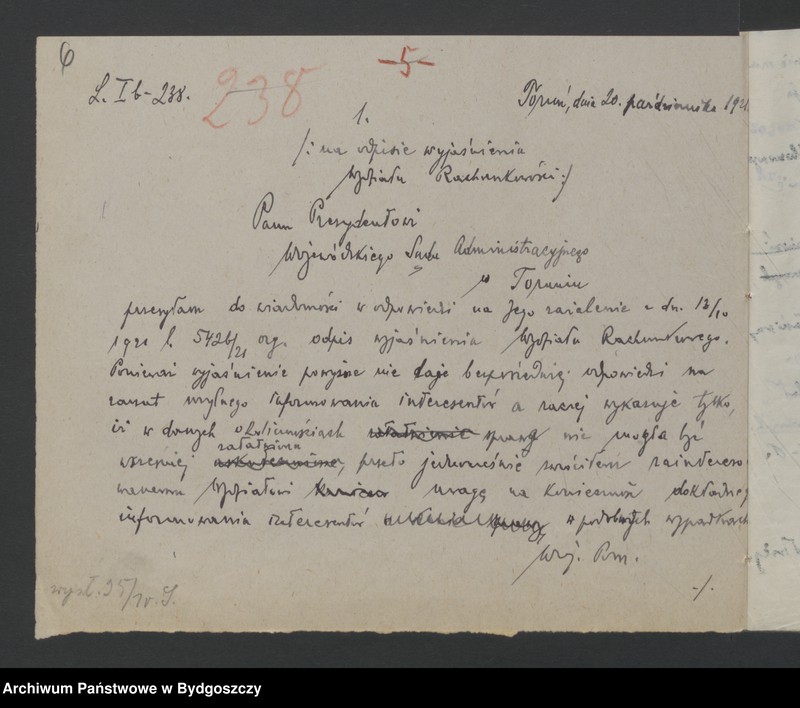 6
5
L. I b - 238.
238
Toruń, dnia 20. października 192
1.
/: na odpisie wyjaśnienia
Wydziału Rachunkowości :/
Panu Prezydentowi
Wojewódzkiego Sądu Administracyjnego
w Toruniu
przesyłam do wiadomości w odpowiedzi na Jego z dn. 12/10
1921 l. 5426/21 org. odpis wyjaśnienia Wydziału Rachunkowego.
Ponieważ wyjaśnienie powyższe nie daje bezpośredniej odpowiedzi na
zarzut mylnego informowania interesentów a raczej wykazuje tylko,
iż w danych okolicznościach załatwienie sprawy nie mogła być
wcześniej załatwiona, przeto jednocześnie zwróciłem zaintereso-
wanemu Wydziałowi uwagę na konieczność dokładnego
informowania interesentów w podobnych wypadkach
Woj. Pom.
-/.
wysł. 25/10. S.
Archiwum Państwowe w Bydgoszczy